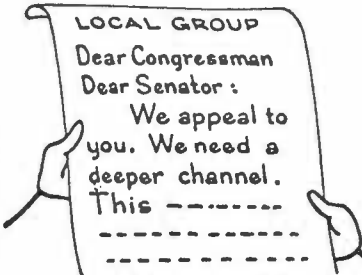 LOCAL GROUP
Dear Congressman
Dear Senator :
We appeal to
you. We need a
deeper channel.
This